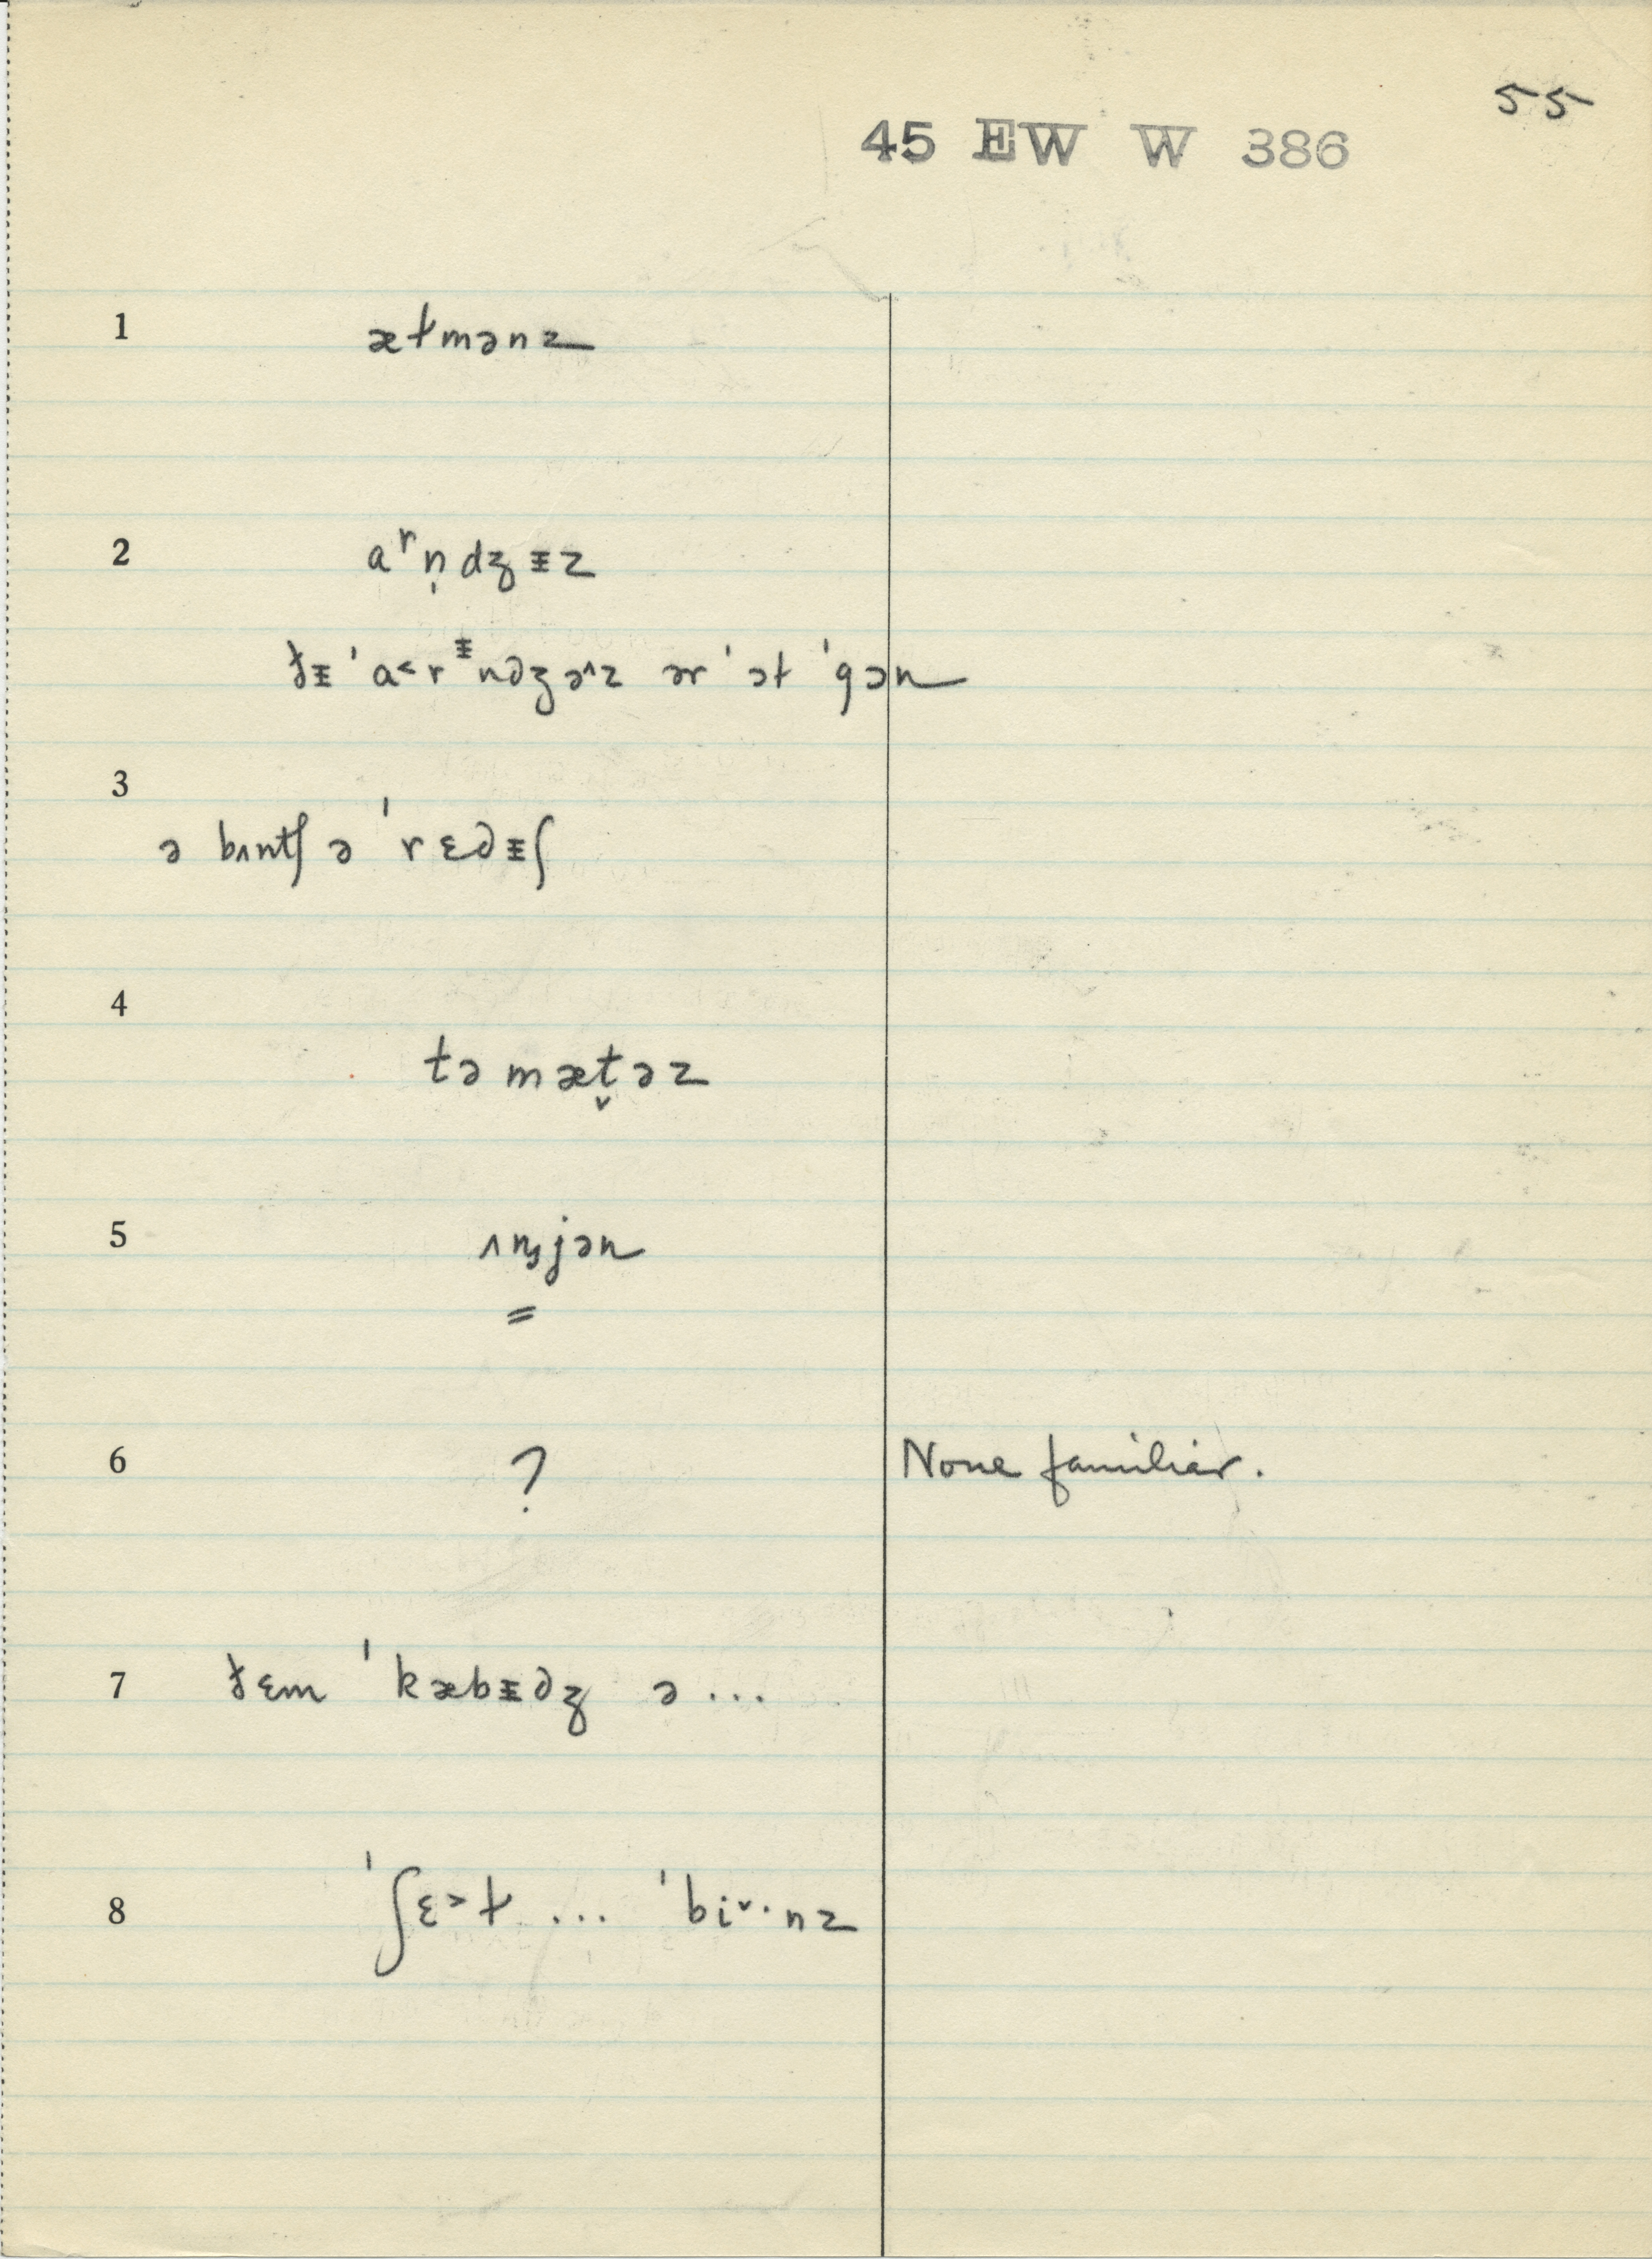 55
45 EW W 386
1 æɫmənz
2 aʳn̩dʒᵻz
ðᵻ ˈa˂rᵻndʒə˄z ər ˈɔɫ ˈgɔn
3 ə bʌntʃ ə ˈrɛdᵻʃ
4 təmæt̬əz
5 ʌŋjən
=
6 ? None familiar.
7 ðɛm ˈkæbᵻdʒ ə...
8 ˈʃɛ˃ɫ ... ˈbi˅·nz